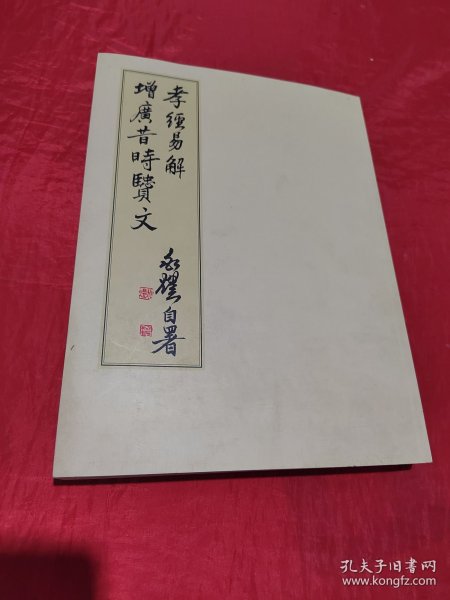 孝經易解
增廣昔時賢文
自署
孔夫子旧书网
www.kongfz.com